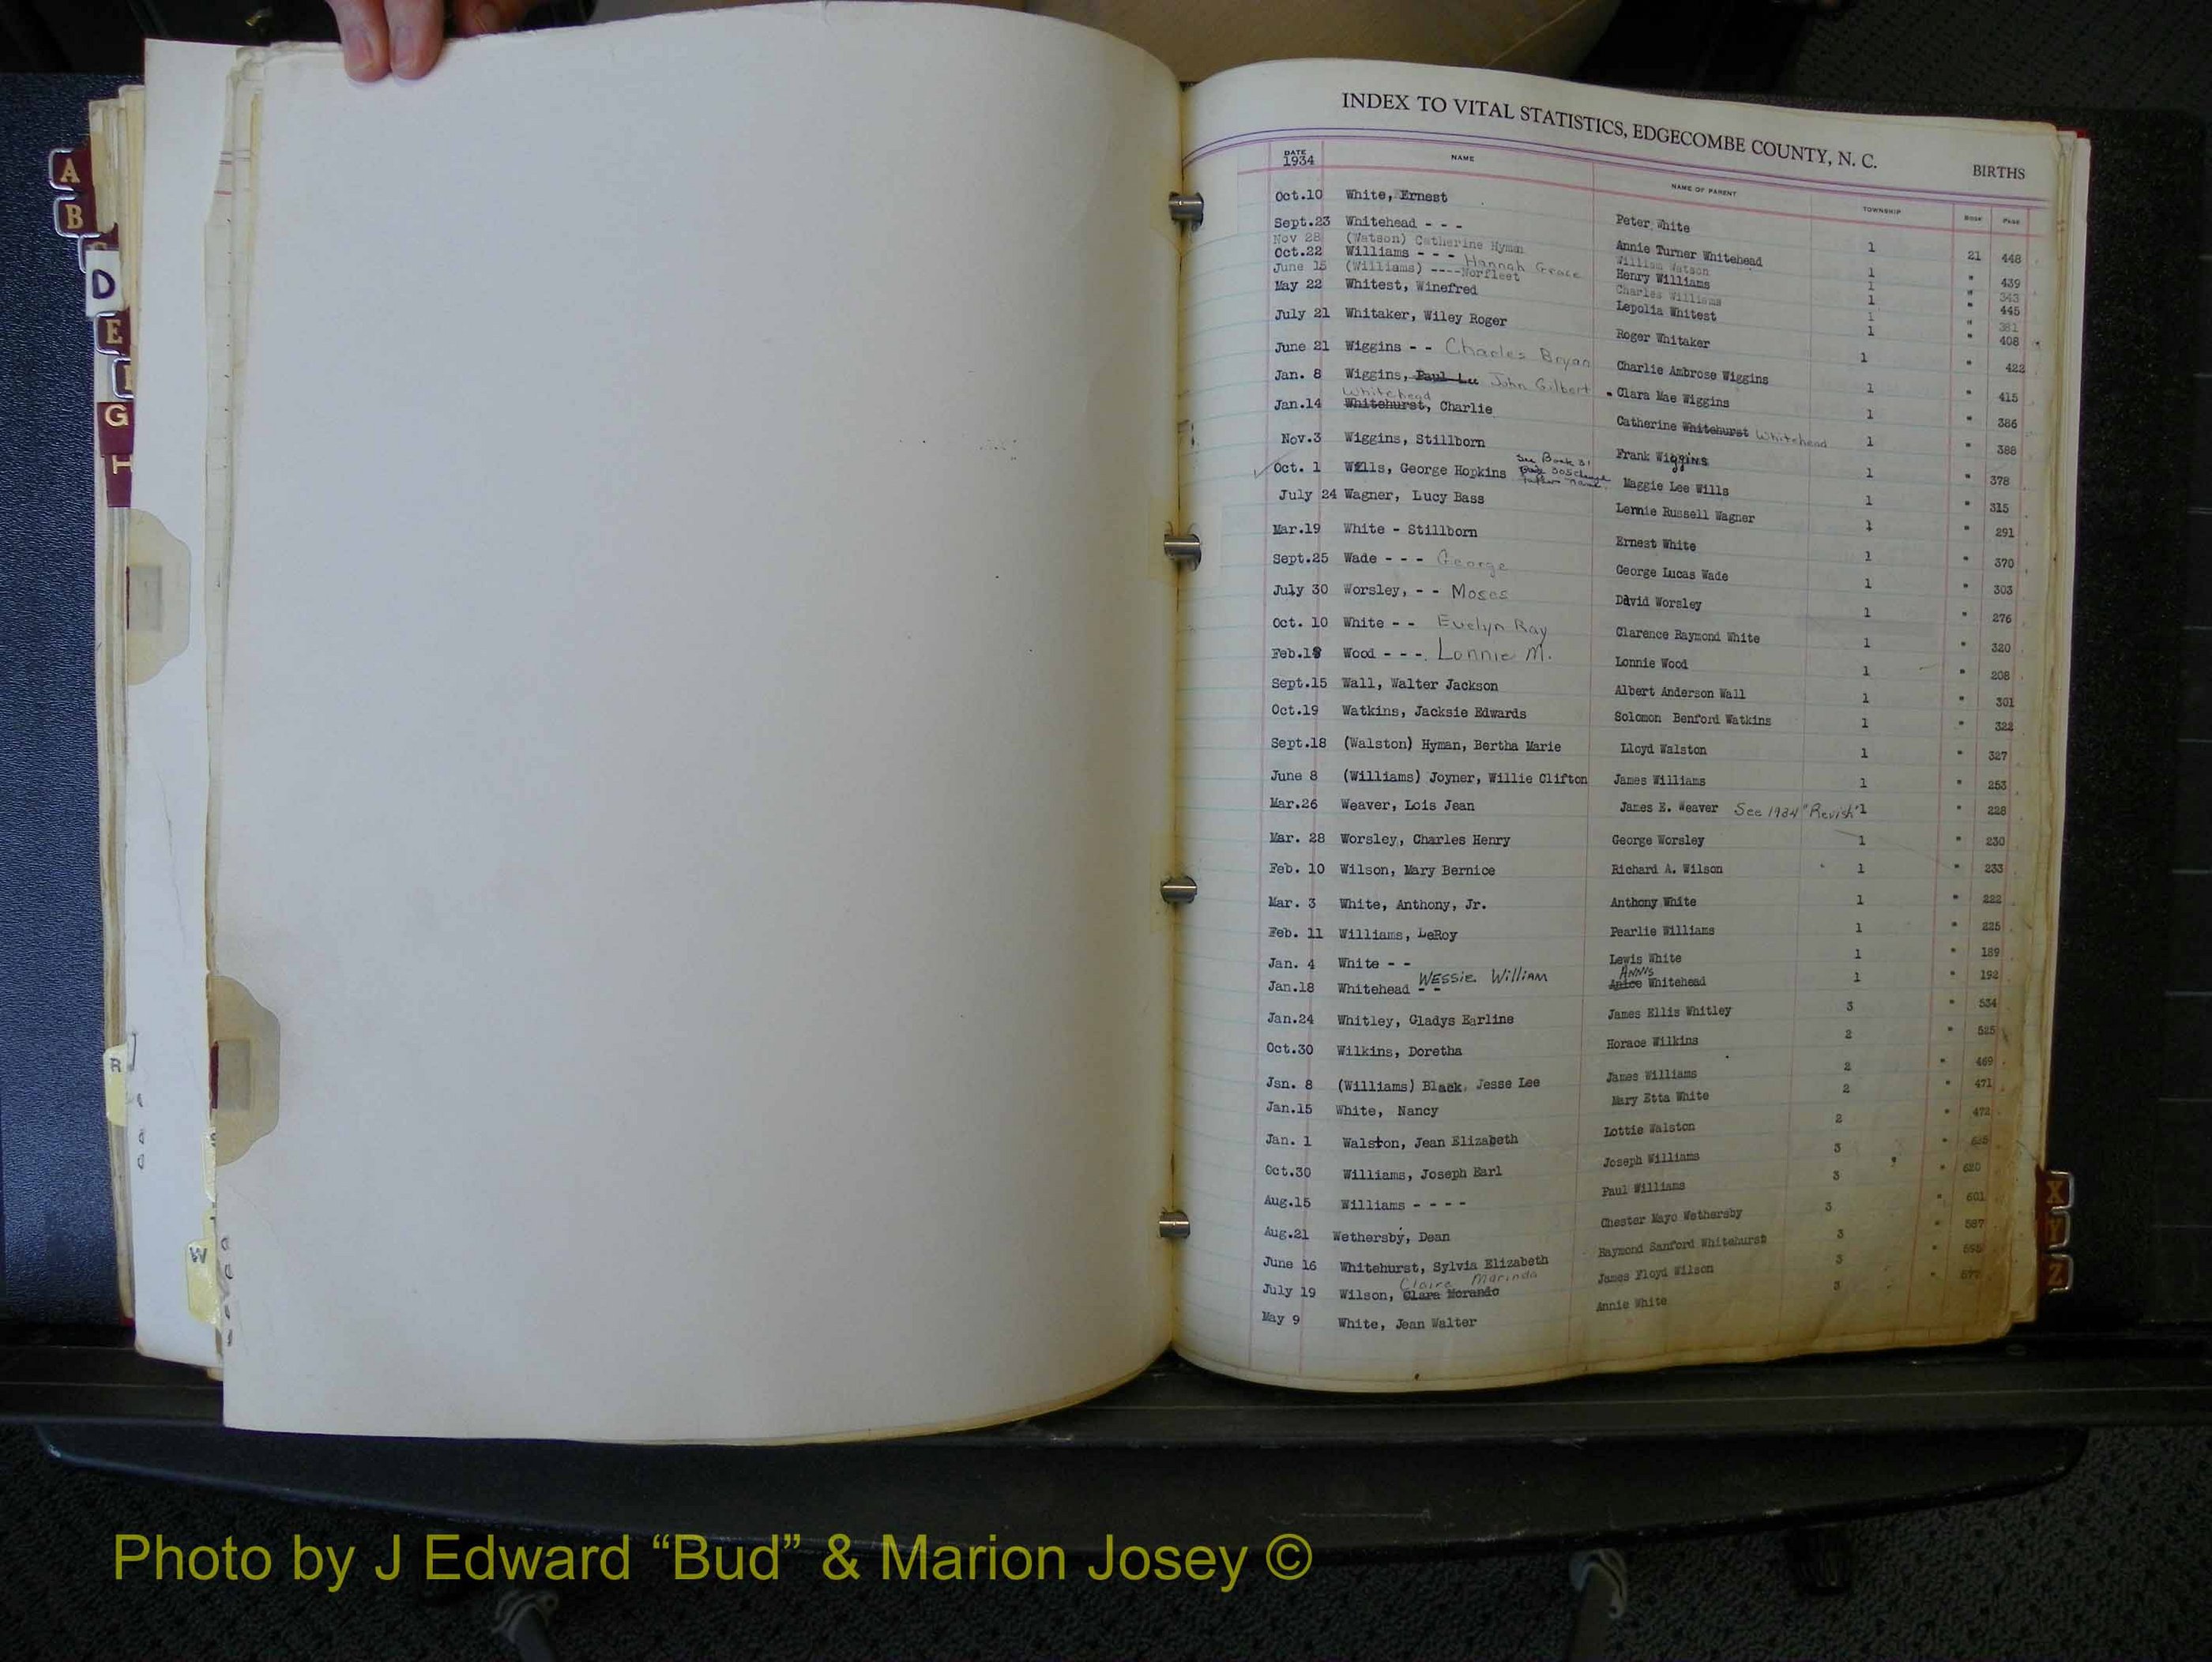 INDEX TO VITAL STATISTICS, EDGECOMBE COUNTY, N. C.
BIRTHS
DATE 1934 NAME NAME OF PARENT TOWNSHIP BOOK PAGE
Oct.10 White, Ernest Peter White 1 21 448
Sept.23 Whitehead - - - Annie Turner Whitehead 1 " 439
Nov 28 (Watson) Catherine Hyman William Watson 1 " 343
Oct.22 Williams - - - Hannah Grace Henry Williams 1 " 445
June 15 (Williams) ----Norfleet Charles Williams 1 " 381
May 22 Whitest, Winefred Lepolia Whitest 1 " 408
July 21 Whitaker, Wiley Roger Roger Whitaker 1 " 422
June 21 Wiggins - - Charles Bryan Charlie Ambrose Wiggins 1 " 415
Jan. 8 Wiggins, Paul Lee John Gilbert Clara Mae Wiggins 1 " 386
Whitehead
Jan.14 Whitehurst, Charlie Catherine Whitehurst Whitehead 1 " 388
Nov.3 Wiggins, Stillborn Frank Wiggins 1 " 378
Oct. 1 Wills, George Hopkins See Book 31 Page 305 change father name. Maggie Lee Wills 1 " 315
July 24 Wagner, Lucy Bass Lennie Russell Wagner 1 " 291
Mar.19 White - Stillborn Ernest White 1 " 370
Sept.25 Wade - - - George George Lucas Wade 1 " 303
July 30 Worsley, - - Moses David Worsley 1 " 276
Oct. 10 White - - Evelyn Ray Clarence Raymond White 1 " 320
Feb.18 Wood - - - Lonnie M. Lonnie Wood 1 " 208
Sept.15 Wall, Walter Jackson Albert Anderson Wall 1 " 301
Oct.19 Watkins, Jacksie Edwards Solomon Benford Watkins 1 " 322
Sept.18 (Walston) Hyman, Bertha Marie Lloyd Walston 1 " 327
June 8 (Williams) Joyner, Willie Clifton James Williams 1 " 253
Mar.26 Weaver, Lois Jean James E. Weaver See 1934 "Revish" 1 " 228
Mar. 28 Worsley, Charles Henry George Worsley 1 " 230
Feb. 10 Wilson, Mary Bernice Richard A. Wilson 1 " 233
Mar. 3 White, Anthony, Jr. Anthony White 1 " 222
Feb. 11 Williams, LeRoy Pearlie Williams 1 " 225
Jan. 4 White - - Lewis White 1 " 189
Jan.18 Whitehead - - Wessie William Annis Anice Whitehead 1 " 192
Jan.24 Whitley, Gladys Earline James Ellis Whitley 3 " 534
Oct.30 Wilkins, Doretha Horace Wilkins 2 " 525
Jan. 8 (Williams) Black, Jesse Lee James Williams 2 " 469
Jan.15 White, Nancy Mary Etta White 2 " 471
Jan. 1 Walston, Jean Elizabeth Lottie Walston 2 " 472
Oct.30 Williams, Joseph Earl Joseph Williams 3 " 625
Aug.15 Williams - - - - Paul Williams 3 " 620
Aug.21 Wethersby, Dean Chester Mayo Wethersby 3 " 601
June 16 Whitehurst, Sylvia Elizabeth Raymond Sanford Whitehurst 3 " 587
Claire Marinda
July 19 Wilson, Clara Morando James Floyd Wilson 3 " 595
May 9 White, Jean Walter Annie White 3 " 577
A
B
D
E
G
H
R
W
X
Y
Z
Photo by J Edward “Bud” & Marion Josey ©